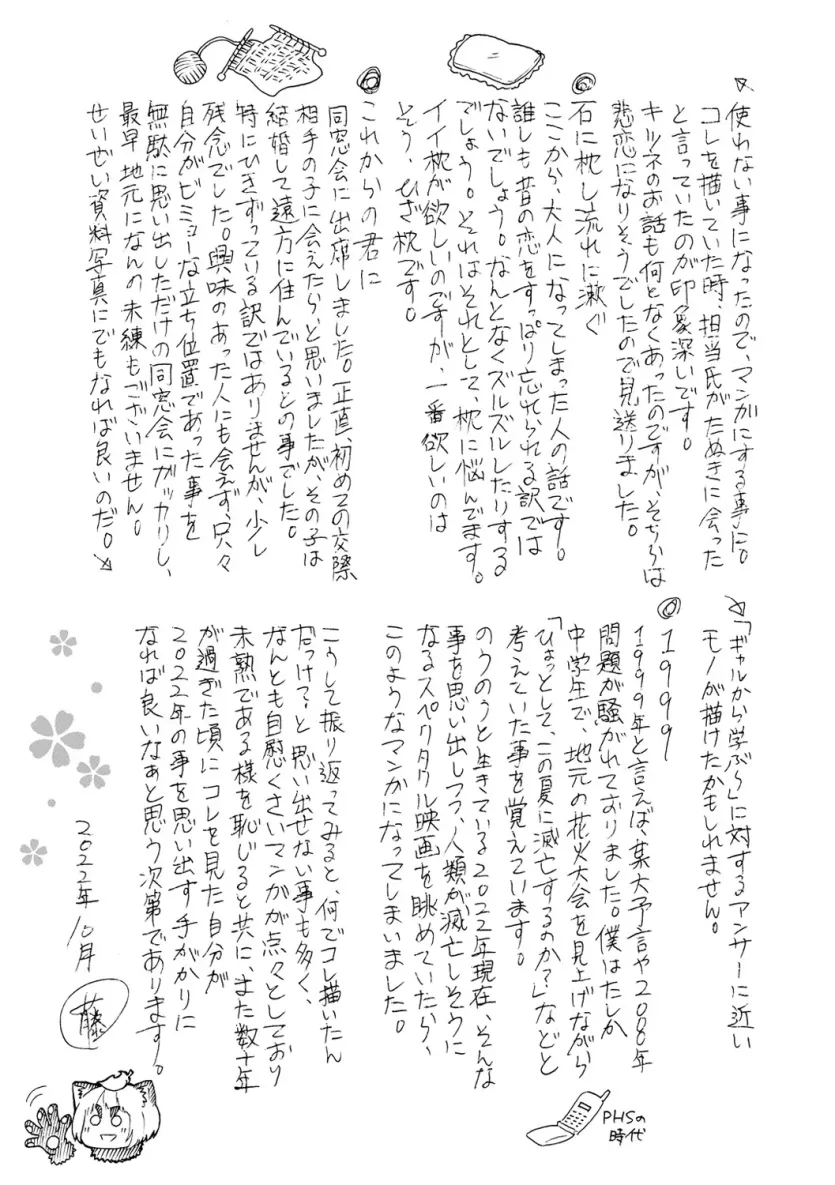 使わない事になったので、マンガにする事に。
コレを描いていた時、担当氏がたぬきに会った
と言っていたのが印象深いです。
キツネのお話も何となくあったのですが、そちらは
悲恋になりそうでしたので見送りました。
◎石に枕し流れに漱ぐ
ここから、大人になってしまった人の話です。
誰しも昔の恋をすっぱり忘れられる訳では
ないでしょう。なんとなくズルズルしたりする
でしょう。それはそれとして、枕に悩んでます。
イイ枕が欲しいのですが、一番欲しいのは
そう、ひざ枕です。
◎これからの君に
同窓会に出席しました。正直、初めての交際
相手の子に会えたらと思いましたが、その子は
結婚して遠方に住んでいるとの事でした。
特にひきずっている訳ではありませんが、少し
残念でした。興味のあった人にも会えず、只々
自分がビミョーな立ち位置であった事を
無駄に思い出しただけの同窓会にガッカリし、
最早地元になんの未練もございません。
せいぜい資料写真にでもなれば良いのだ。
「ギャルから学ぶら」に対するアンサーに近い
モノが描けたかもしれません。
◎1999
1999年と言えば、某大予言や2000年
問題が騒がれておりました。僕はたしか
中学生で、地元の花火大会を見上げながら
「ひょっとして、この夏に滅亡するのか?」などと
考えていた事を覚えています。
のうのうと生きている2022年現在、そんな
事を思い出しつつ、人類が滅亡しそうに
なるスペクタクル映画を眺めていたら、
このようなマンガになってしまいました。
PHSの
時代
こうして振り返ってみると、何でコレ描いたん
だっけ?と思い出せない事も多く、
なんとも自慰くさいマンガが点々としており
未熟である様を恥じると共に、また数十年
が過ぎた頃にコレを見た自分が
2022年の事を思い出す手がかりに
なれば良いなぁと思う次第であります。
2022年10月
藤